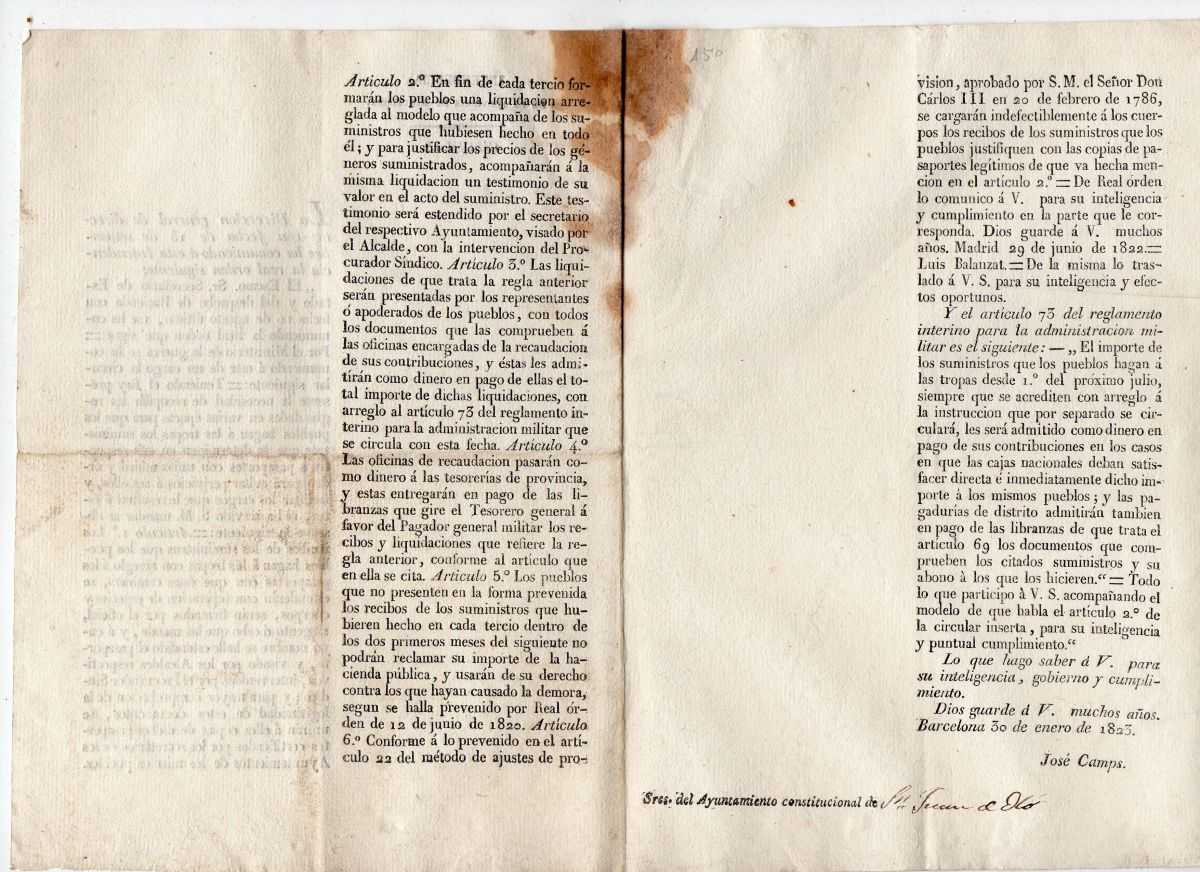 Articulo 2.º En fin de cada tercio for-
marán los pueblos una liquidacion arre-
glada al modelo que acompaña de los su-
ministros que hubiesen hecho en todo
él; y para justificar los precios de los gé-
neros suministrados, acompañarán á la
misma liquidacion un testimonio de su
valor en el acto del suministro. Este tes-
timonio será estendido por el secretario
del respectivo Ayuntamiento, visado por
el Alcalde, con la intervencion del Pro-
curador Síndico. Articulo 3.º Las liqui-
daciones de que trata la regla anterior
serán presentadas por los representantes
ó apoderados de los pueblos, con todos
los documentos que las comprueben á
las oficinas encargadas de la recaudacion
de sus contribuciones, y éstas les admi-
tirán como dinero en pago de ellas el to-
tal importe de dichas liquidaciones, con
arreglo al artículo 73 del reglamento in-
terino para la administracion militar que
se circula con esta fecha. Articulo 4.º
Las oficinas de recaudacion pasarán co-
mo dinero á las tesorerías de provincia,
y estas entregarán en pago de las li-
branzas que gire el Tesorero general á
favor del Pagador general militar los re-
cibos y liquidaciones que refiere la re-
gla anterior, conforme al artículo que
en ella se cita. Articulo 5.º Los pueblos
que no presenten en la forma prevenida
los recibos de los suministros que hu-
bieren hecho en cada tercio dentro de
los dos primeros meses del siguiente no
podrán reclamar su importe de la ha-
cienda pública, y usarán de su derecho
contra los que hayan causado la demora,
segun se halla prevenido por Real ór-
den de 12 de junio de 1820. Articulo
6.º Conforme á lo prevenido en el artí-
culo 22 del método de ajustes de pro-
150
vision, aprobado por S. M. el Señor Don
Cárlos III en 20 de febrero de 1786,
se cargarán indefectiblemente á los cuer-
pos los recibos de los suministros que los
pueblos justifiquen con las copias de pa-
saportes legítimos de que va hecha men-
cion en el artículo 2.º = De Real órden
lo comunico á V. para su inteligencia
y cumplimiento en la parte que le cor-
responda. Dios guarde á V. muchos
años. Madrid 29 de junio de 1822.=
Luis Balanzat.=De la misma lo tras-
lado á V. S. para su inteligencia y efec-
tos oportunos.
Y el artículo 73 del reglamento
interino para la administracion mi-
litar es el siguiente: — „El importe de
los suministros que los pueblos hagan á
las tropas desde 1.º del próximo julio,
siempre que se acrediten con arreglo á
la instruccion que por separado se cir-
culará, les será admitido como dinero en
pago de sus contribuciones en los casos
en que las cajas nacionales deban satis-
facer directa é inmediatamente dicho im-
porte á los mismos pueblos; y las pa-
gadurías de distrito admitirán tambien
en pago de las libranzas de que trata el
artículo 69 los documentos que com-
prueben los citados suministros y su
abono á los que los hicieren.“ = Todo
lo que participo á V. S. acompañando el
modelo de que habla el artículo 2.º de
la circular inserta, para su inteligencia
y puntual cumplimiento.“
Lo que hago saber á V. para
su inteligencia, gobierno y cumpli-
miento.
Dios guarde á V. muchos años.
Barcelona 30 de enero de 1823.
José Camps.
Sres. del Ayuntamiento constitucional de Sn. Juan de Oló